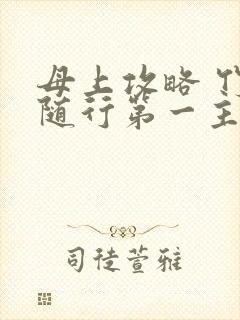 母上攻略
随行第一主
司徒萱雅